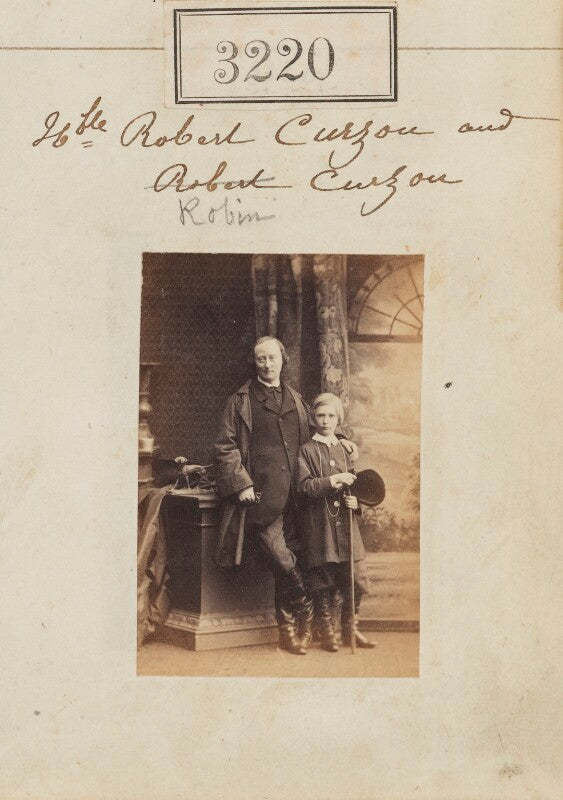 3220
Hble Robert Curzon and
Robert Curzon
Robin